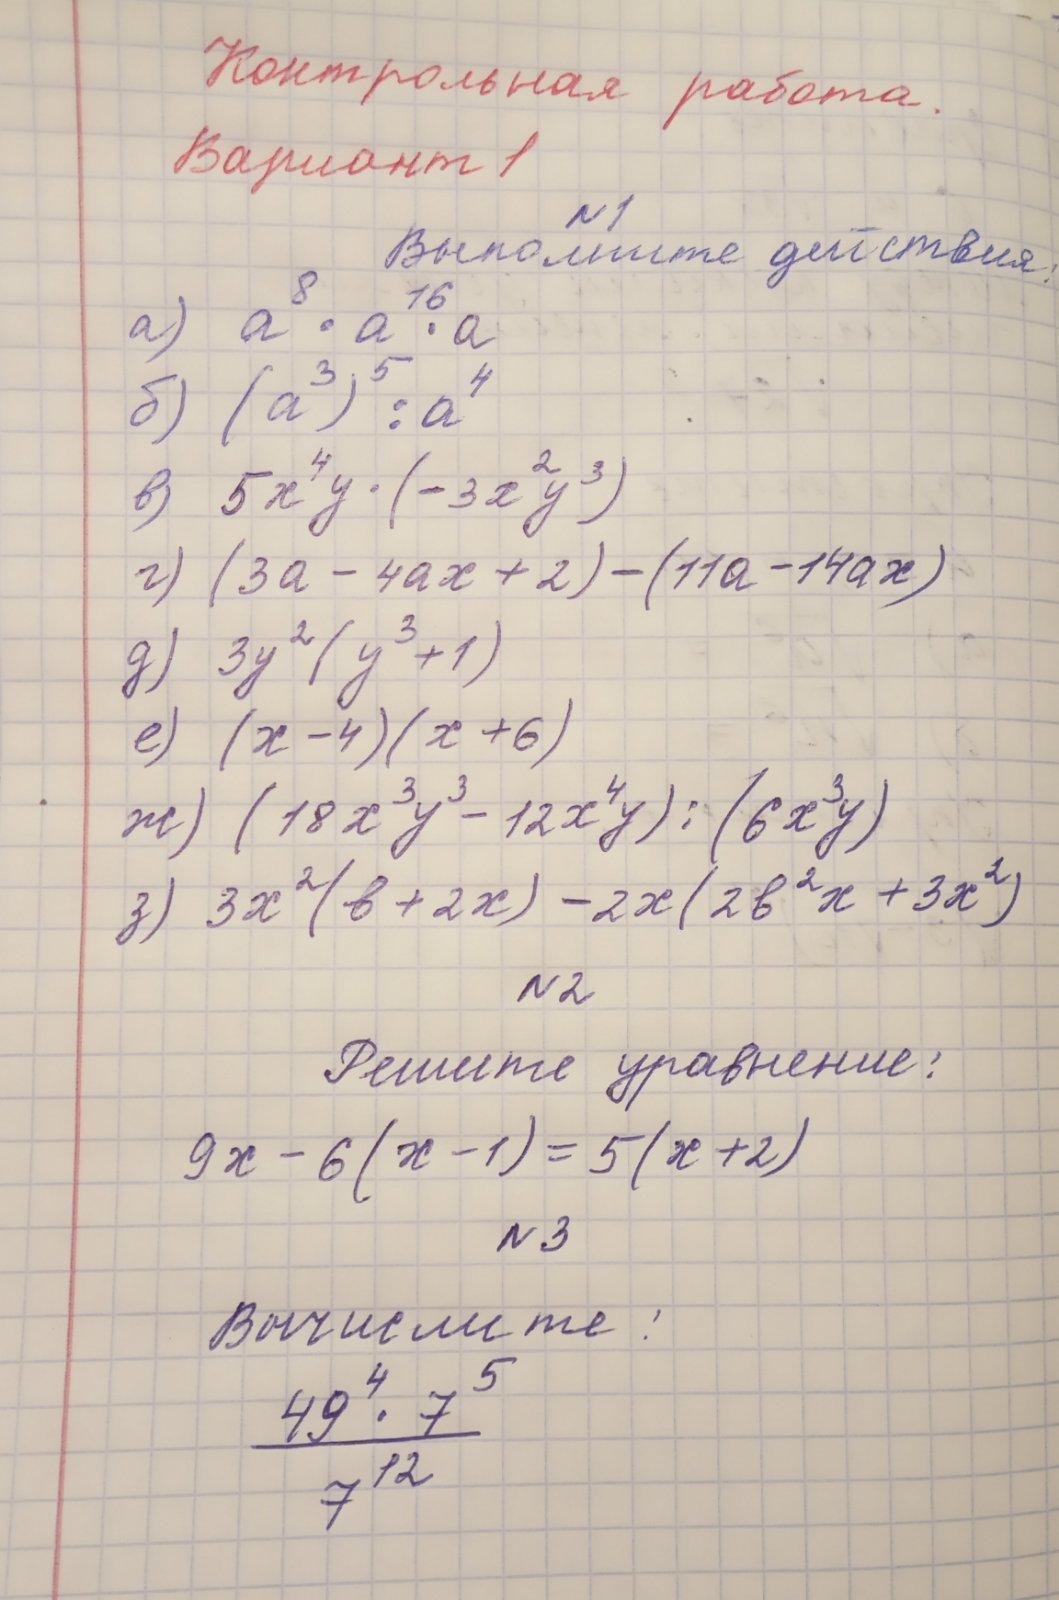 Контрольная работа.
Вариант 1
N1
Выполните действия:
а) a⁸ · a¹⁶ · a
б) (a³)⁵ : a⁴
в) 5x⁴y · (-3x²y³)
г) (3a - 4ax + 2) - (11a - 14ax)
д) 3y² (y³ + 1)
е) (x - 4)(x + 6)
ж) (18x³y³ - 12x⁴y) : (6x³y)
з) 3x² (в + 2x) - 2x (2в²x + 3x²)
N2
Решите уравнение:
9x - 6(x - 1) = 5(x + 2)
N3
Вычислите:
49⁴ · 7⁵
7¹²